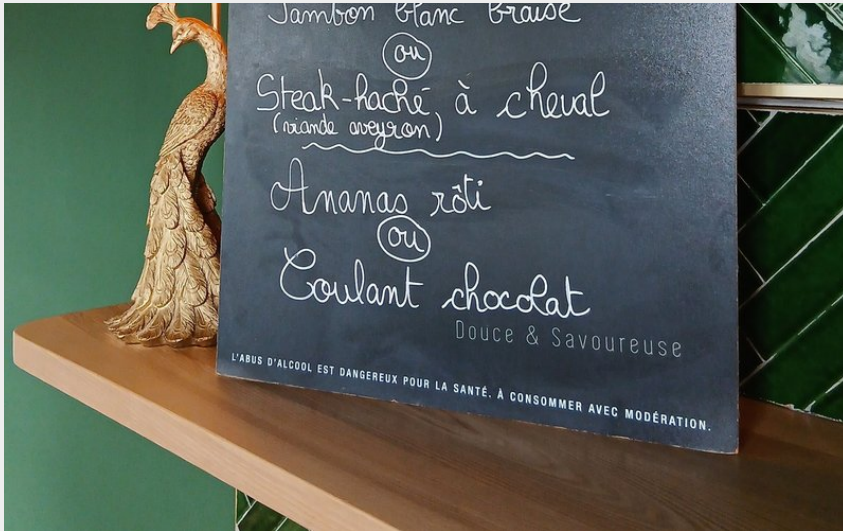 Jambon blanc braisé
ou
Steak-haché à cheval
(viande aveyron)
Ananas rôti
ou
Coulant chocolat
Douce & Savoureuse
L'ABUS D'ALCOOL EST DANGEREUX POUR LA SANTÉ. À CONSOMMER AVEC MODÉRATION.